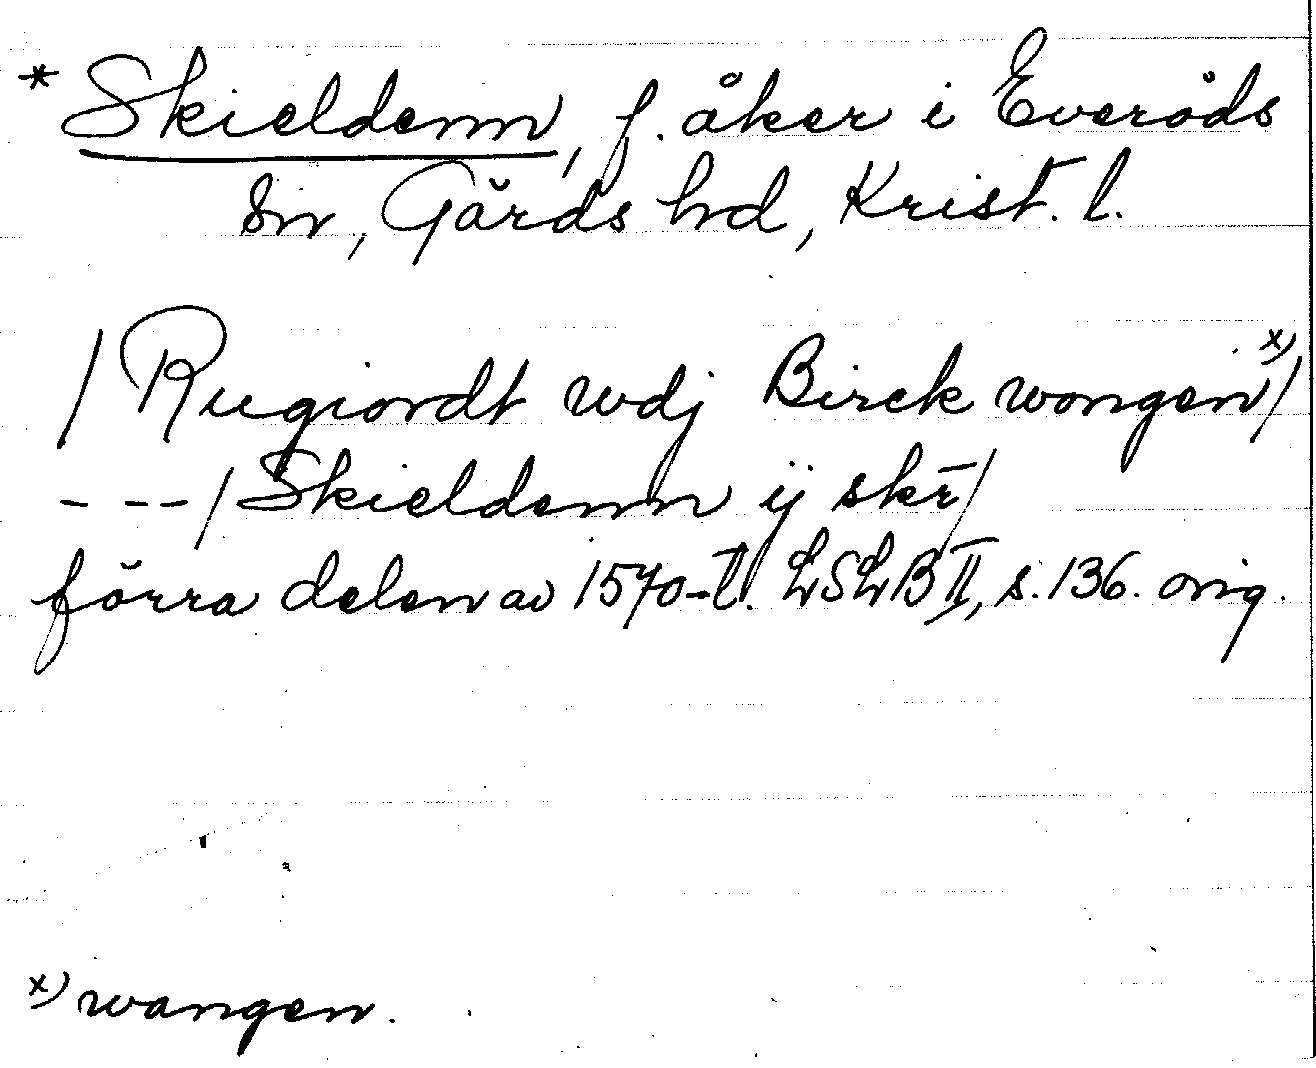 * Skieldenn, f. åker i Everöds
sn, Gärds hd, Krist. l.
/Rugiordt wdj Birck wongen x)/
- - - / Skieldenn ij skr̄/
förra delen av 1570-t. LSLB II, s. 136. orig.
x) wangen.